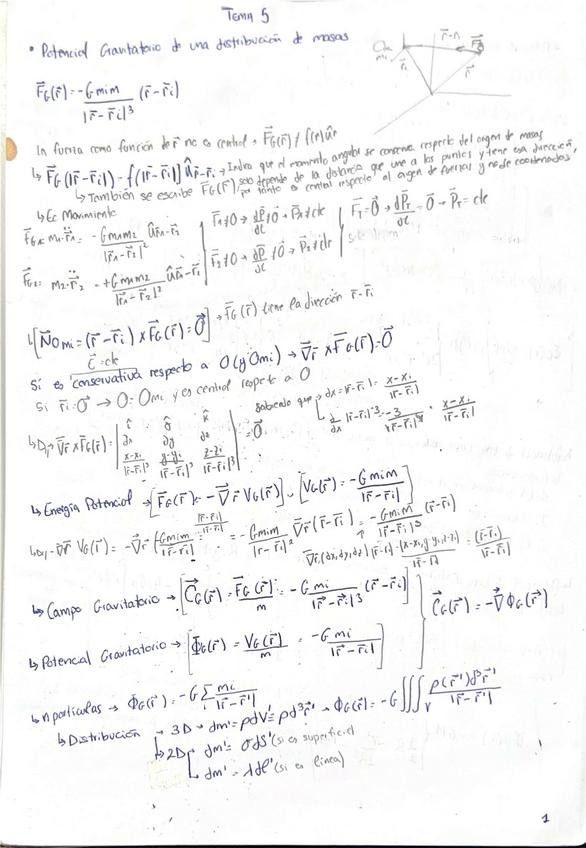 TEMA 5
• Potencial Gravitatorio de una distribución de masas
F⃗G(r⃗) = -G mi m / |r⃗-r⃗i|³ (r⃗-r⃗i)
mi r⃗i r⃗-r⃗i r⃗
La fuerza como función de r⃗ no es central, F⃗G(r⃗) ≠ f(r) ûr
↳ F⃗G (|r⃗-r⃗i|) = f(|r⃗-r⃗i|) û r⃗-r⃗i → Indica que el momento angular se conserva respecto del origen de masas
↳ También se escribe F⃗G(r⃗) solo depende de la distancia que une a los puntos y tiene esa dirección,
por tanto es central respecto al origen de fuerzas y no de coordenadas
↳ Ec Movimiento
m1·r̈1 = -G m1 m2 / |r⃗1-r⃗2|² û r⃗1-r⃗2 F⃗1≠0 → dp⃗/dt ≠ 0⃗ → p⃗1 ≠ cte F⃗T=0⃗ → dP⃗T/dt = 0⃗ → P⃗T = cte
m2·r̈2 = +G m1 m2 / |r⃗1-r⃗2|² û r⃗1-r⃗2 F⃗2≠0 → dp⃗/dt ≠ 0⃗ → p⃗2 ≠ cte
↳ [N⃗Omi = (r⃗-r⃗i) x F⃗G(r⃗) = 0⃗] → F⃗G(r⃗) tiene la dirección r⃗-r⃗i
= cte
Sí es conservativa respecto a O (y Omi) → ∇⃗r x F⃗G(r⃗) = 0⃗
Si r⃗i = 0⃗ → O = Omi y es central respecto a O
↳ D/ ∇⃗r x F⃗G(r⃗) = | î ĵ k̂ ; ∂x ∂y ∂z ; x-xi/|r⃗-r⃗i|³ y-yi/|r⃗-r⃗i|³ z-zi/|r⃗-r⃗i|³ | = 0⃗ Sabiendo que → ∂x |r⃗-r⃗i| = x-xi / |r⃗-r⃗i|
∂/∂x |r⃗-r⃗i|⁻³ = -3 / |r⃗-r⃗i|⁴ · x-xi / |r⃗-r⃗i|
↳ Energía Potencial → [F⃗G(r⃗) = -∇⃗r VG(r⃗)], [VG(r⃗) = -G mi m / |r⃗-r⃗i|]
↳ D/ -∇⃗r VG(r⃗) = -∇⃗r = -G mi m / |r-r⃗i|² ∇⃗r = -G mi m / |r⃗-r⃗i|³ (r⃗-r⃗i)
∇⃗r (∂x,∂y,∂z) |r⃗-r⃗i| = (x-xi, y-yi, z-zi) / |r⃗-r⃗i| = (r⃗-r⃗i) / |r⃗-r⃗i|
↳ Campo Gravitatorio → [G⃗G(r⃗) = F⃗G(r⃗)/m = -G mi / |r⃗-r⃗i|³ (r⃗-r⃗i)] G⃗G(r⃗) = -∇⃗ΦG(r⃗)
↳ Potencial Gravitatorio → [ΦG(r⃗) = VG(r⃗)/m = -G mi / |r⃗-r⃗i|]
↳ n partículas → ΦG(r⃗) = -G Σi mi / |r⃗-r⃗i|
↳ Distribución → 3D → dm' = ρdV' = ρd³r⃗' → ΦG(r⃗) = -G ∭V ρ(r⃗')d³r⃗' / |r⃗-r⃗'|
↳ 2D → dm' = σds' (si es superficie)
↳ dm' = λdl' (si es línea)
1